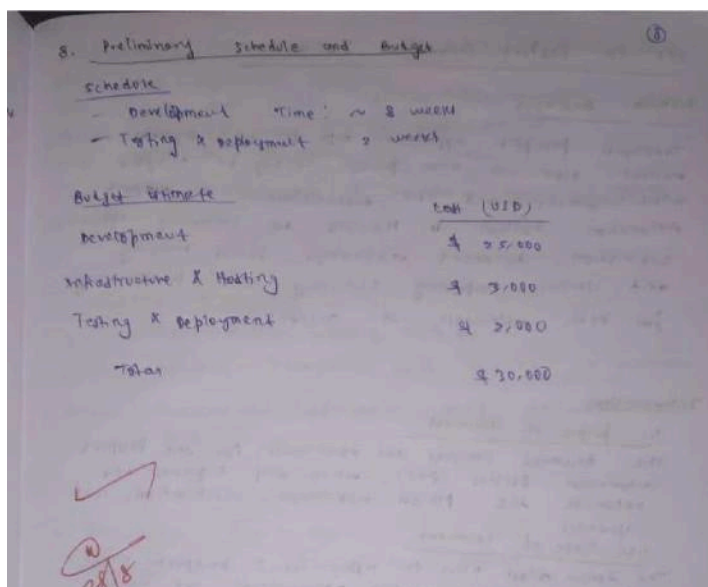 8
8. Preliminary schedule and Budget
Schedule
- Development Time: ~ 8 weeks
- Testing & Deployment 2 weeks
Budget Estimate
Cost (USD)
Development $ 25,000
Infrastructure & Hosting $ 3,000
Testing & Deployment $ 2,000
Total $ 30,000
28/8